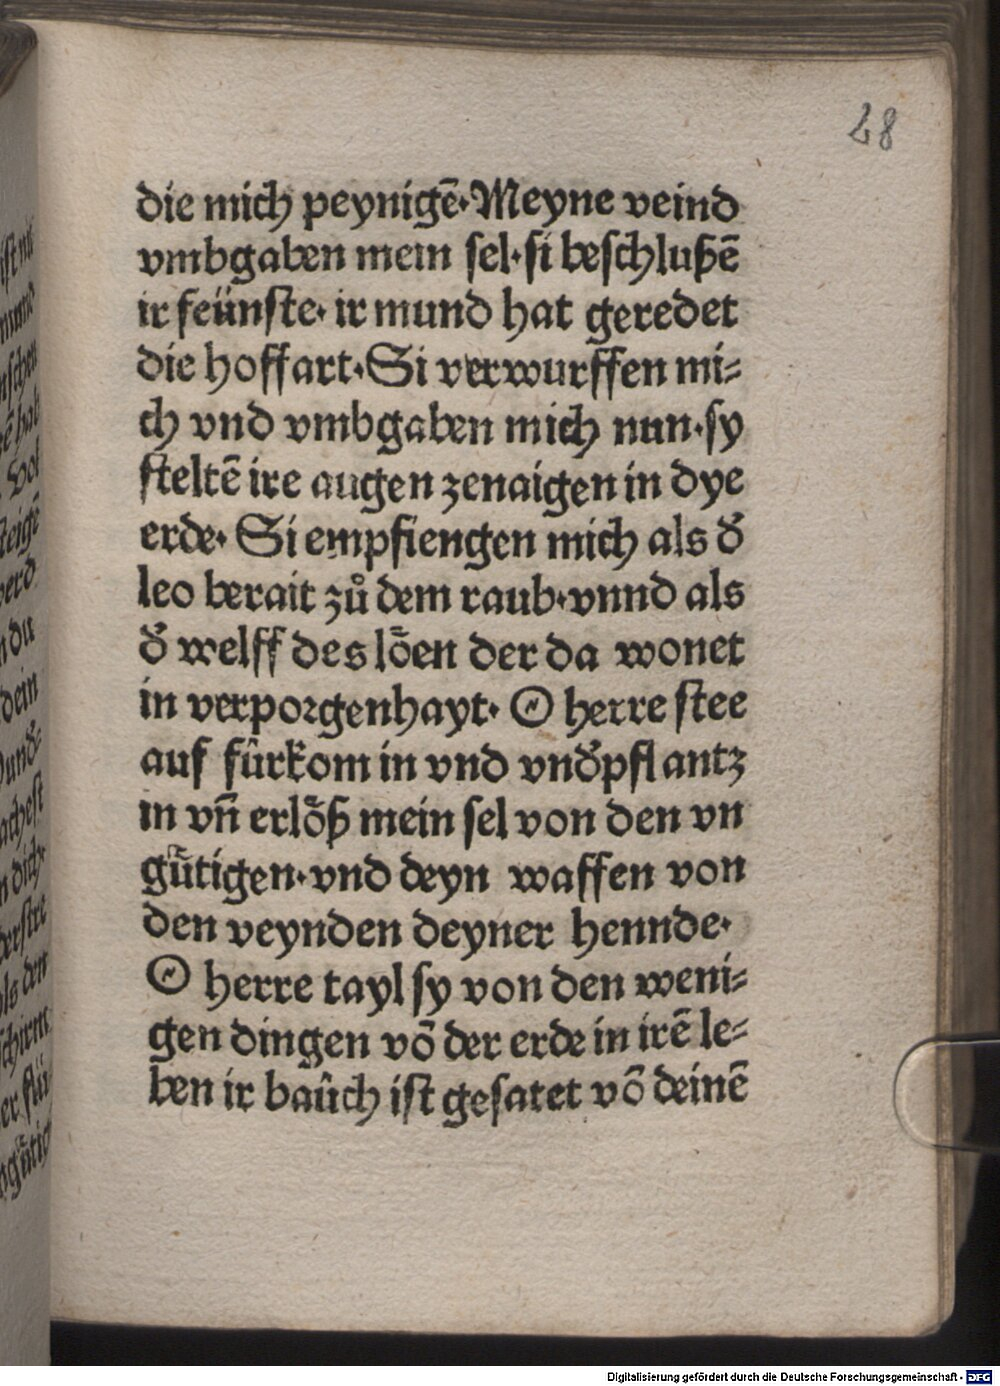 28
die mich peynigē·Meyne veind
vmbgaben mein sel·si beschlußē
ir feünste· ir mund hat geredet
die hoffart·Si verwurffen mi-
ch vnd vmbgaben mich nun·sy
steltē ire augen zenaigen in dye
erde· Si empfiengen mich als d̄
leo berait zů dem raub·vnnd als
d̄ welff des lȫen der da wonet
in verporgenhayt· O herre stee
auf fûrkom in vnd vnd̄pflantz
in vn̄ erlöß mein sel von den vn
gütigen·vnd deyn waffen von
den veynden deyner hennde·
O herre tayl sy von den weni-
gen dingen vō der erde in irē le-
ben ir baûch ist gesatet vō deinē
Digitalisierung gefördert durch die Deutsche Forschungsgemeinschaft - DFG